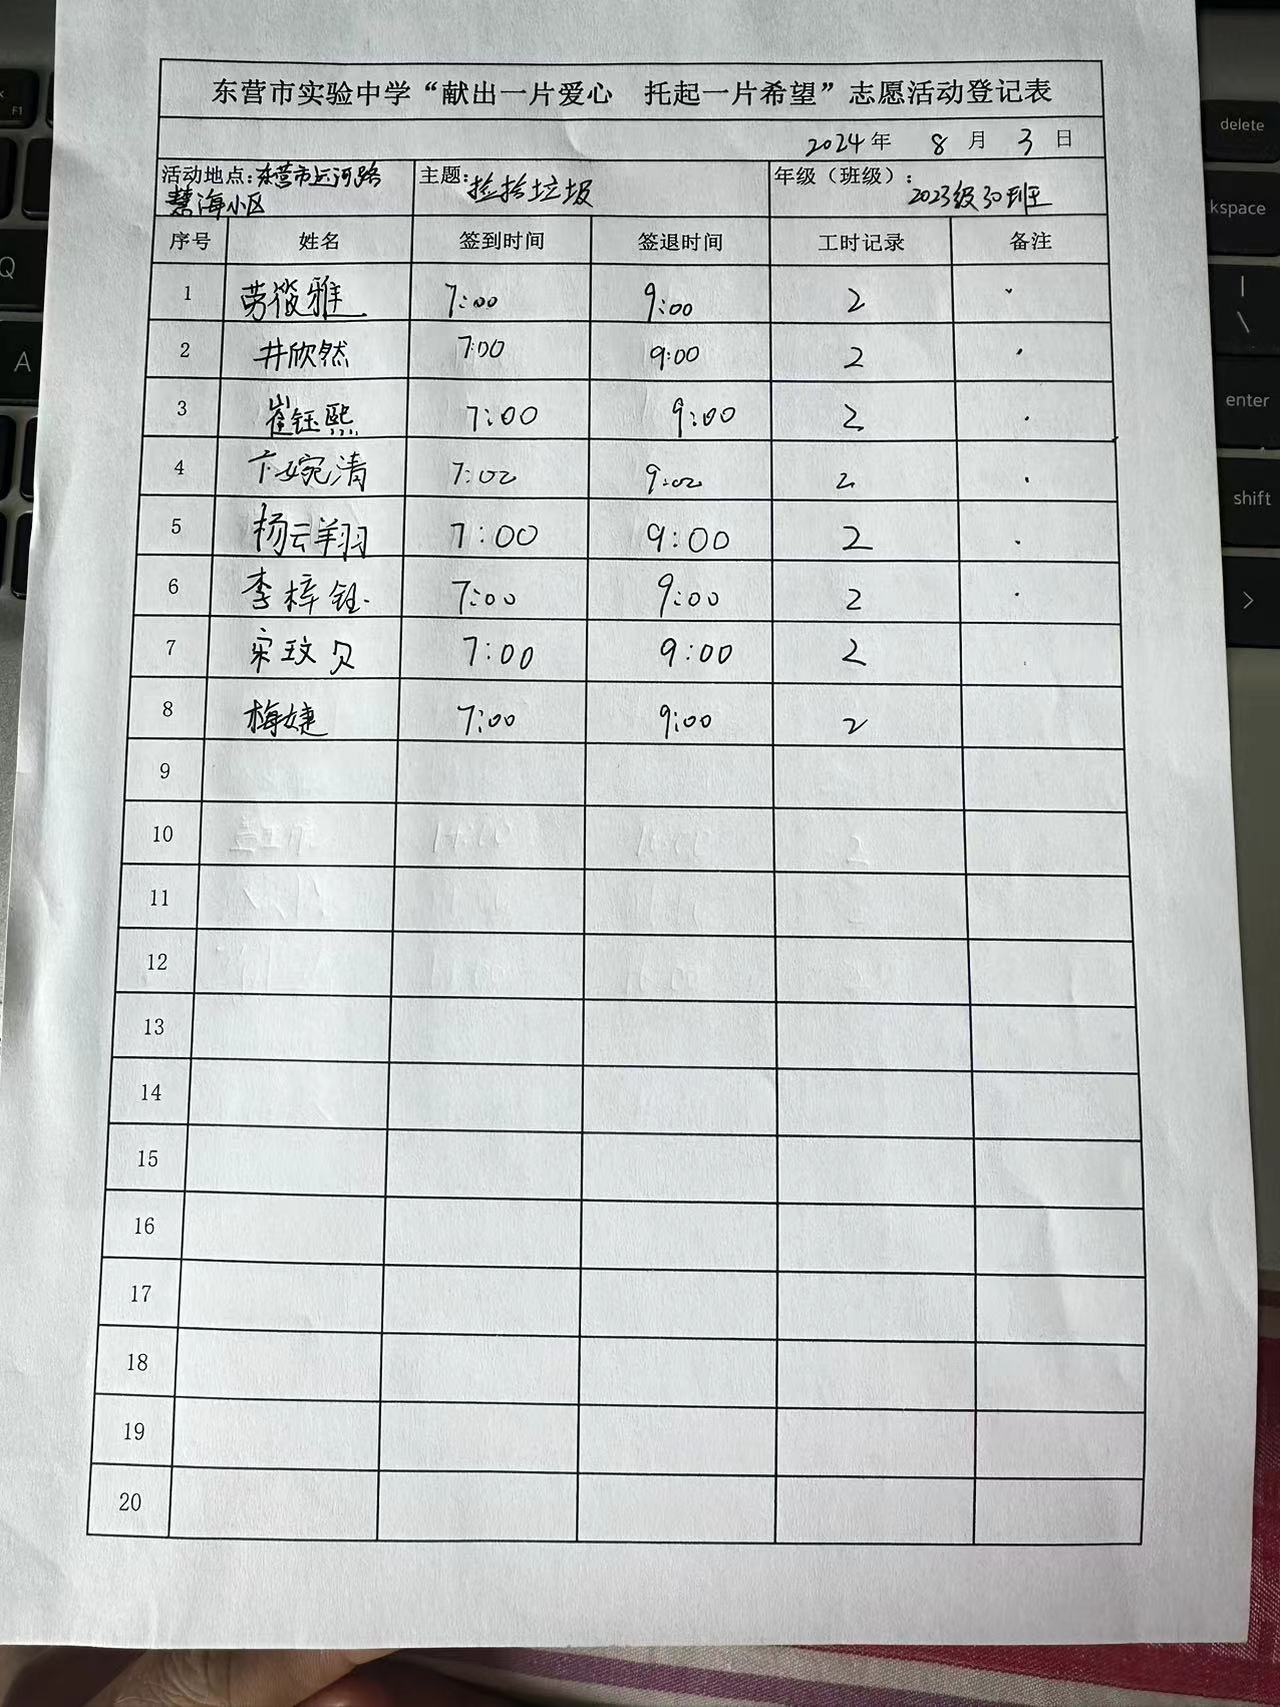 东营市实验中学“献出一片爱心 托起一片希望”志愿活动登记表
2024年 8 月 3 日
活动地点:东营市运河路慧海小区 主题:捡拾垃圾 年级（班级）: 2023级30班
序号 姓名 签到时间 签退时间 工时记录 备注
1 劳筱雅 7:00 9:00 2
2 井欣然 7:00 9:00 2
3 崔钰熙 7:00 9:00 2
4 卞婉清 7:02 9:02 2
5 杨云翔 7:00 9:00 2
6 李梓钰 7:00 9:00 2
7 宋玟贝 7:00 9:00 2
8 梅婕 7:00 9:00 2
9
10
11
12
13
14
15
16
17
18
19
20
delete
kspace
enter
shift
Q
A
F1
|
\
>